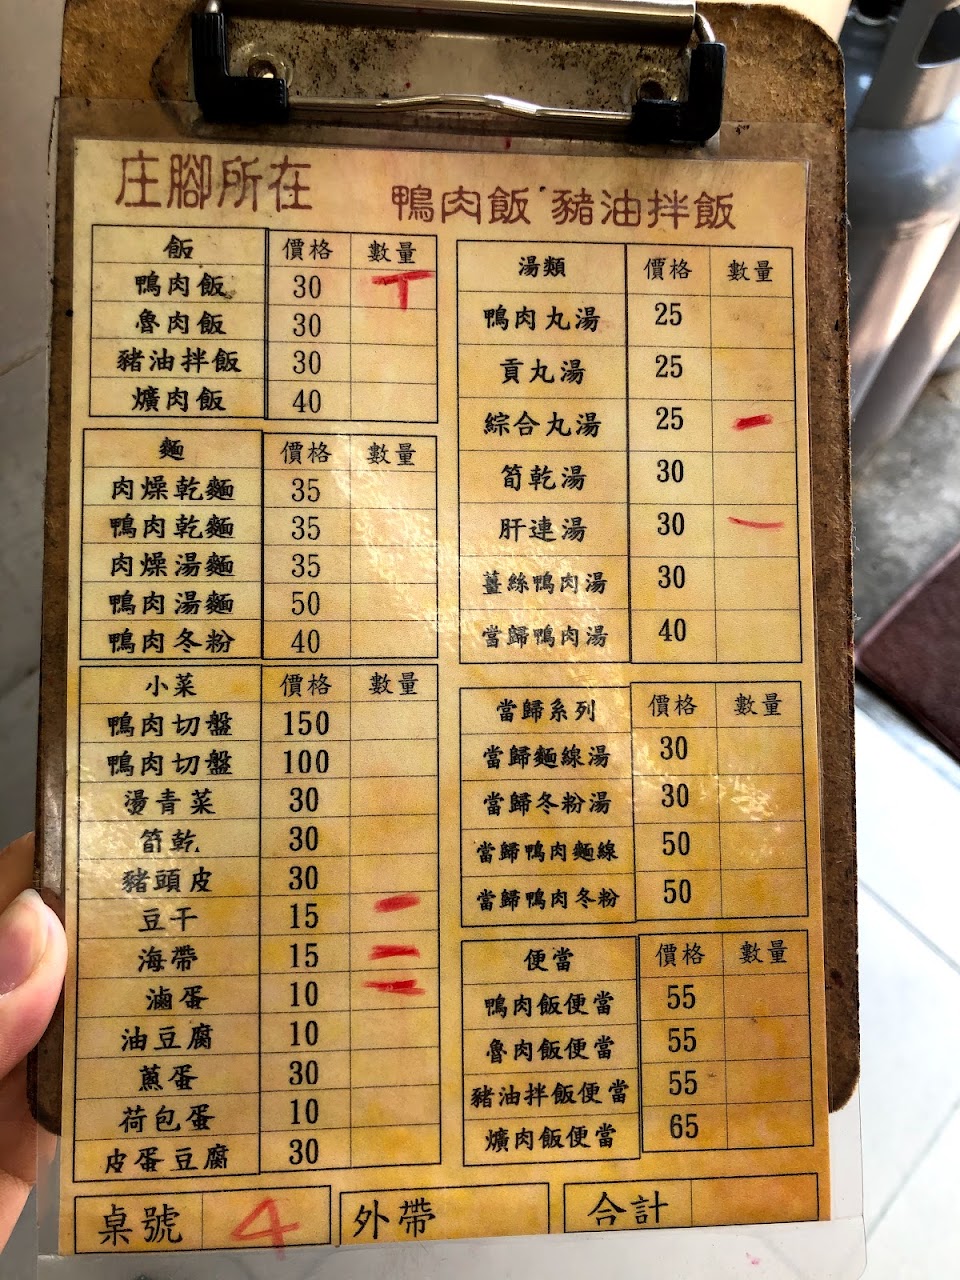 庄腳所在 鴨肉飯 豬油拌飯
飯 價格 數量
鴨肉飯 30 丅
魯肉飯 30
豬油拌飯 30
爌肉飯 40
麵 價格 數量
肉燥乾麵 35
鴨肉乾麵 35
肉燥湯麵 35
鴨肉湯麵 50
鴨肉冬粉 40
小菜 價格 數量
鴨肉切盤 150
鴨肉切盤 100
燙青菜 30
筍乾 30
豬頭皮 30
豆干 15 一
海帶 15 二
滷蛋 10 一
油豆腐 10
蒸蛋 30
荷包蛋 10
皮蛋豆腐 30
湯類 價格 數量
鴨肉丸湯 25
貢丸湯 25
綜合丸湯 25 一
筍乾湯 30
肝連湯 30 一
薑絲鴨肉湯 30
當歸鴨肉湯 40
當歸系列 價格 數量
當歸麵線湯 30
當歸冬粉湯 30
當歸鴨肉麵線 50
當歸鴨肉冬粉 50
便當 價格 數量
鴨肉飯便當 55
魯肉飯便當 55
豬油拌飯便當 55
爌肉飯便當 65
桌號 4 外帶 合計